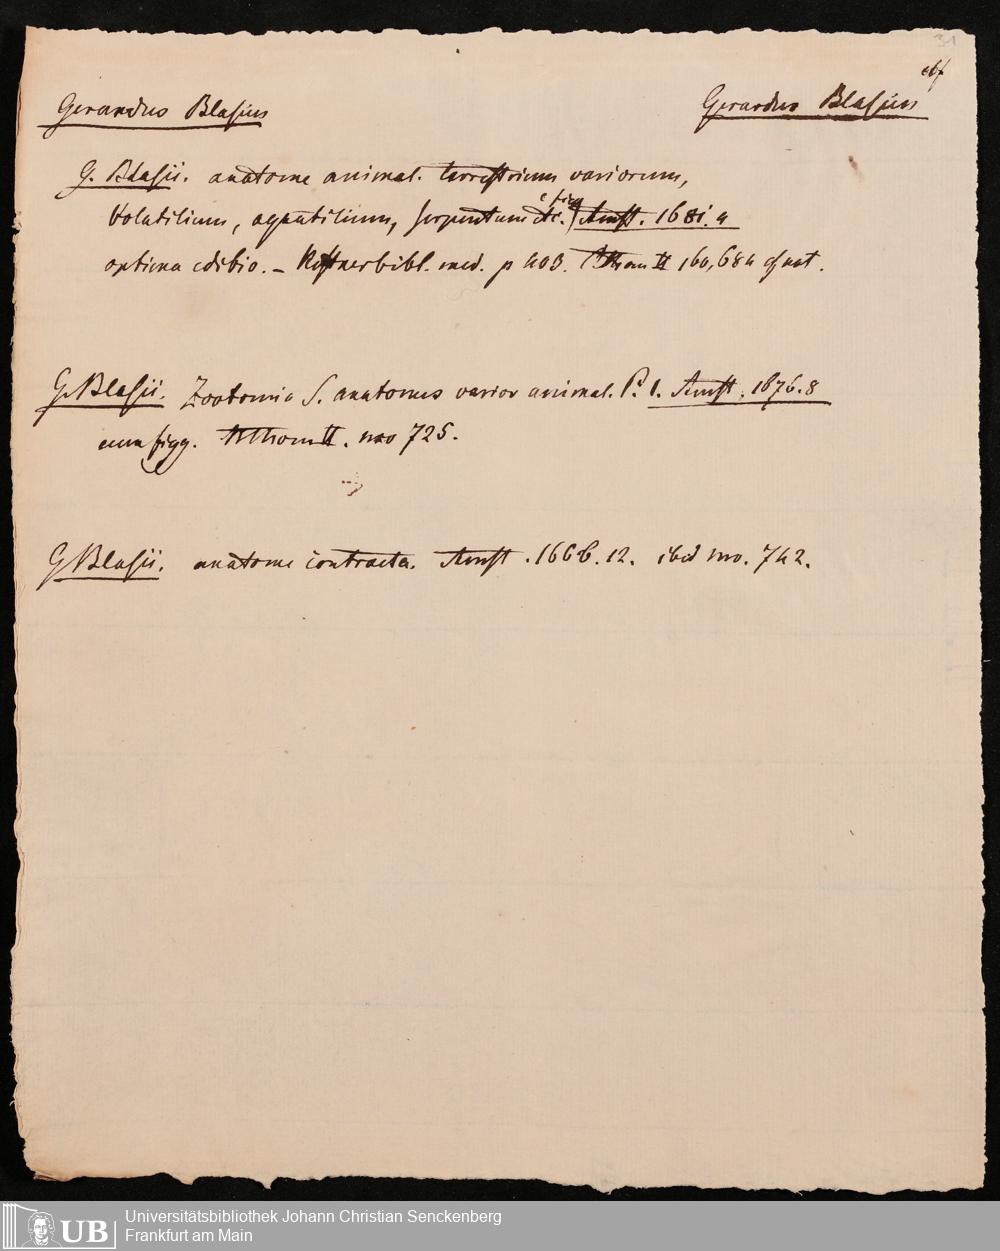 31
Gerardus Blasius
Gerardus Blasius
G. Blasii. anatome animal. terrestrium variorum,
Volatilium, aquatilium, serpentum etc. c fig Amst. 1681. 4
optima editio. - bibl. med. p 403. II 160, 684
G. Blasii. Zootomia S. anatomes varior animal. P. 1. Amst. 1676. 8
cum figg. II. nro 725.
G Blasii. anatome contracta. Amst. 1666. 12. ibid nro. 742.
UB Universitätsbibliothek Johann Christian Senckenberg
Frankfurt am Main